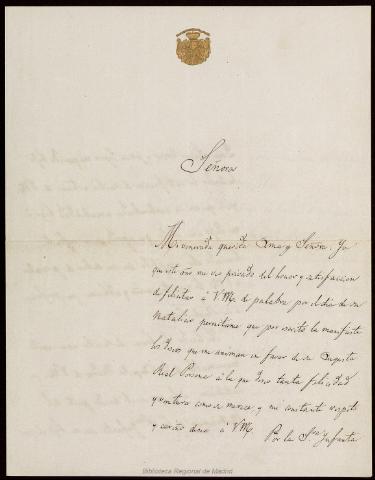 Señora
Mi venerada querida Ama y Señora: Ya
que este año me veo privado del honor y satisfaccion
de felicitar á V.M. de palabra por el dia de su
Natalicio permitame que por escrito la manifieste
los deseos que me animan en favor de su Augusta
Real Persona á la que deseo tanta felicidad
y ventura como se merece y mi constante respeto
y cariño desea á V.M.
Por la Sra Infanta
Biblioteca Regional de Madrid